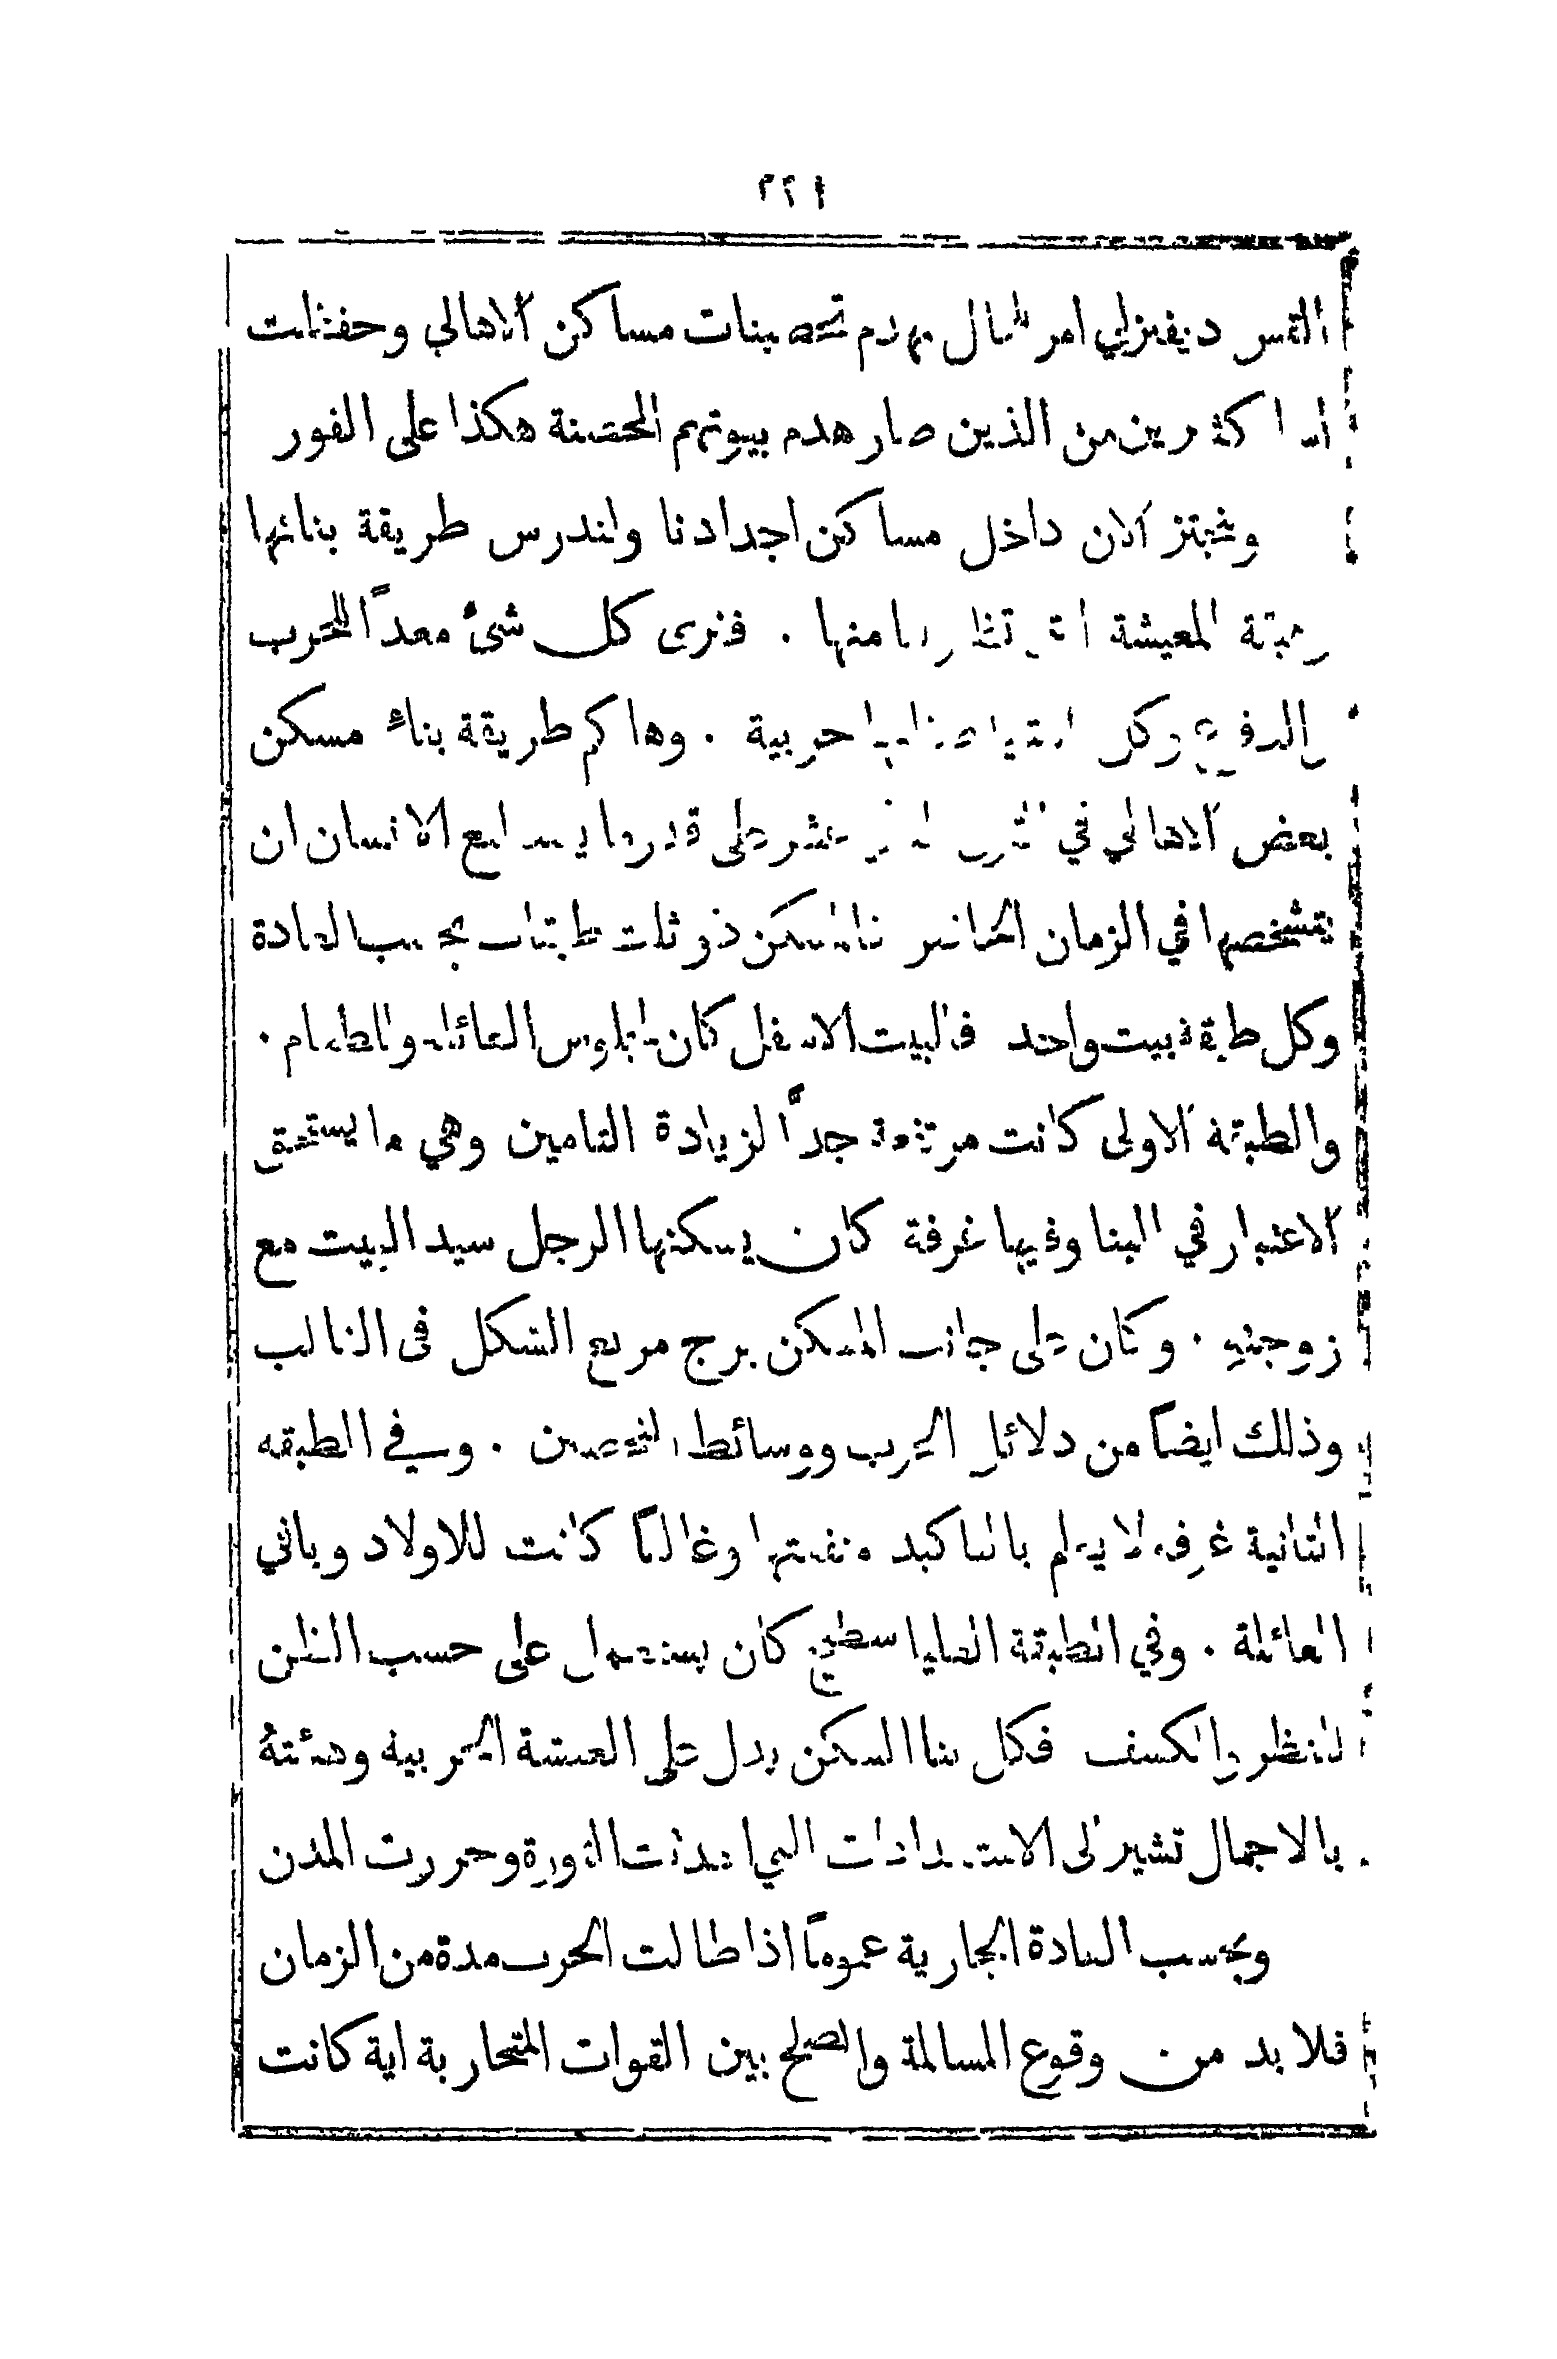 ٢٢١
القس ديفنزلي امر للحال بهدم تحصينات مساكن الاهالي وحفظت
كثيرين من الذين صار هدم بيوتهم المحصنة هكذا على الفور
ونجتز الان داخل مساكن اجدادنا ولندرس طريقة بنائها
وهيئة المعيشة منها . فنرى كل شئ معداً للحرب
والدفاع وكل حربية . وهاكم طريقة بناء مسكن
بعض الاهالي في عشر على قدر ما يستطيع الانسان ان
يتشخصها في الزمان الحاضر فالمسكن ذو ثلث طبقات بحسب العادة
وكل طبقة بيت واحد فالبيت الاسفل كان لجلوس العائلة والطعام .
والطبقة الاولى كانت مرتفعة جداً لزيادة التامين وهي ما يستحق
الاعتبار في البنا وفيها غرفة كان يسكنها الرجل سيد البيت مع
زوجته . وكان على جانب المسكن برج مربع الشكل في الغالب
وذلك ايضاً من دلائل الحرب ووسائط التحصين . وفي الطبقه
الثانية غرفة لا يعلم بالتاكيد منفعتها وغالباً كانت للاولاد وباقي
العائلة . وفي الطبقة العليا سطيح كان يستعمل على حسب الظن
للنظر والكشف فكل بنا المسكن يدل على العيشة الحربية وهيئته
بالاجمال تشير الى الاستعدادات التي الثورة وحررت المدن
وبحسب العادة الجارية عموماً اذا طالت الحرب مدة من الزمان
فلا بد من وقوع المسالمة والصلح بين القوات المتحاربة اية كانت